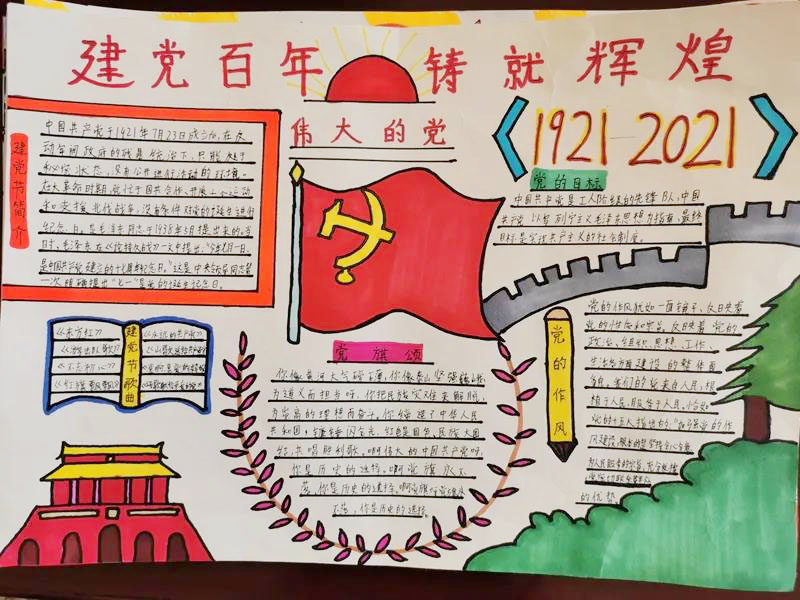 建党百年 铸就辉煌
伟大的党
1921-2021
建党节简介
中国共产党于1921年7月23日成立后,在反
动军阀政府的残暴统治下,只能处于
秘密状态,没有公开进行活动的环境。
在大革命时期,
和支援北伐战争,没有条件对党的诞生进行
纪念日。是毛泽东同志于1938年5月提出来的。当
时,毛泽东在《论持久战》一文中提出:“今年七月一日,
是中国共产党建立的十七周年纪念日。”这是中央领导同志第
一次明确提出“七一”是党的诞生纪念日。
党的目标
中国共产党是工人阶级的先锋队,中国
共产党以马列主义毛泽东思想为指南,最终
目标是实现共产主义的社会制度。
建党节歌曲
《东方红》
《游击队歌》
《不忘初心》
《红旗飘飘》
《永远的共产党》
党旗颂
你像黄河大气磅礴,你像泰山坚强巍峨,
为道义而担当呀,你把民族灾难来解脱,
为崇高的理想而奋斗,你缔造了中华人民
共和国,镰刀锤头闪金光,红色是国色,民族大团
结,共唱胜利歌,啊伟大的中国共产党呀,
你是历史的选择,啊党旗永不
落,你是历史的选择,啊党旗
不落,你是历史的选择。
党的作风
党的作风犹如一面镜子,反映着
党的性质和宗旨,反映着党的
政治、组织、思想、工作、
生活各方面建设的整体面
貌,我们的党来自人民,根
植于人民,服务于人民,
风建设,
的优势